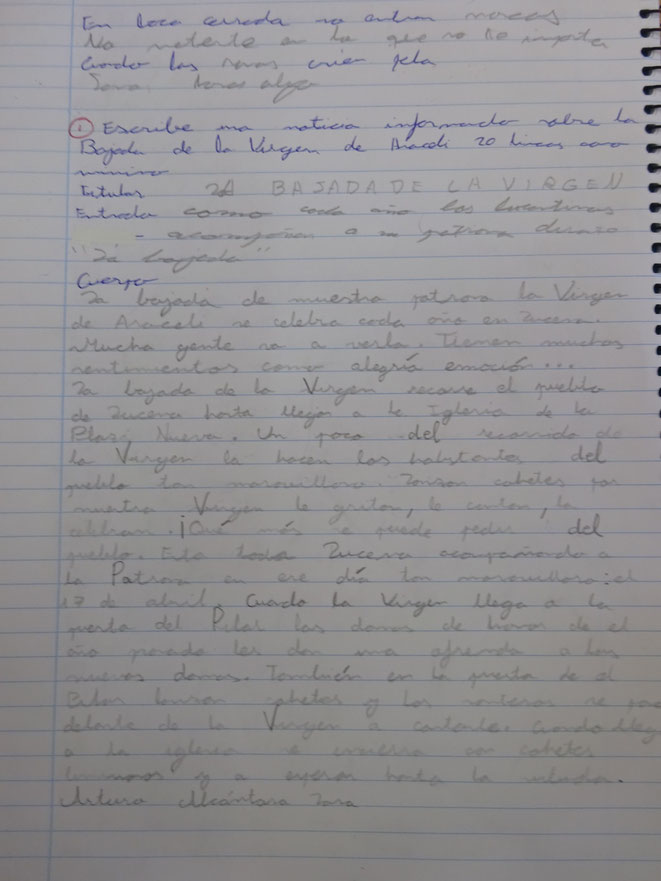 En boca cerrada no entran moscas
No meterte en lo que no te importa
Cuando las ranas crien pelo
① Escribe una noticia informando sobre la
Bajada de la Virgen de Araceli 20 lineas como
minimo
Titular LA BAJADA DE LA VIRGEN
Entrada como cada año los lucentinos
acompañan a su patrona
"La bajada"
Cuerpo
La bajada de nuestra patrona la Virgen
de Araceli se celebra cada año en Lucena.
Mucha gente va a verla. Tienen muchos
sentimientos como alegría emoción...
La bajada de la Virgen recorre el pueblo
de Lucena hasta llegar a la Iglesia de la
Plaza Nueva. Un poco del recorrido de
la Virgen la hacen los habitantes del
pueblo tan maravilloso. Lanzan cohetes por
nuestra Virgen le gritan, le cantan, la
celebran. ¡Qué más se puede pedir del
pueblo. Esta toda Lucena acompañando a
la Patrona en ese día tan maravilloso: el
17 de abril. Cuando la Virgen llega a la
puerta del Pilar las damas de honor de el
año pasado les dan una ofrenda a las
nuevas damas. También en la puerta de el
Pilar lanzan cohetes y los se
delante de la Virgen a cantarle. Cuando
a la iglesia se con cohetes
luminosos y a esperar hasta la subida.
Arturo Alcántara